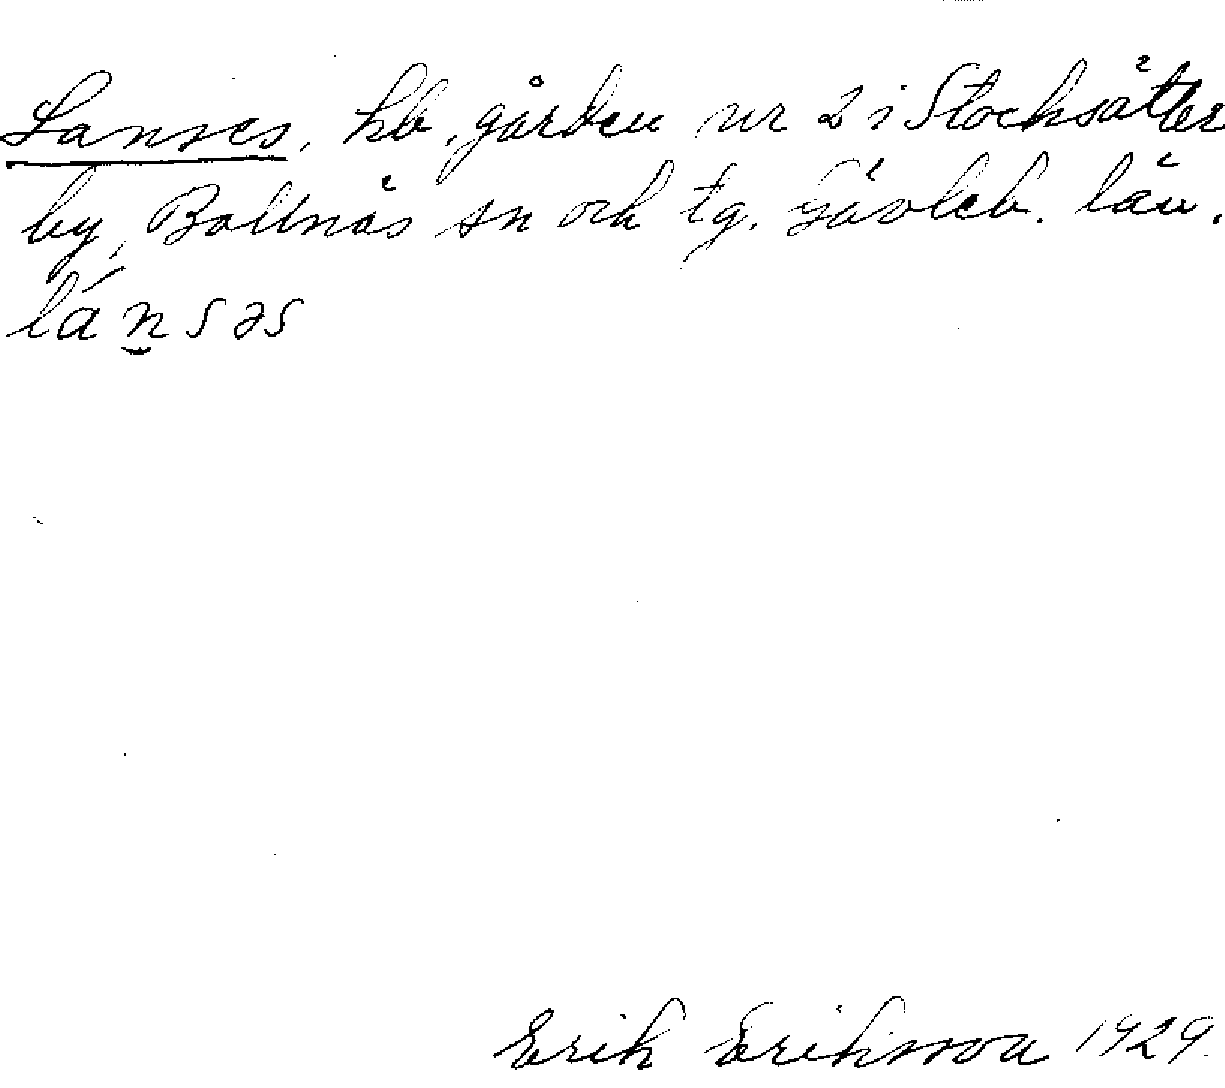 Lanses, hb, gården nr 2 i Stocksätter
by, Bollnäs sn och tg. Gävleb. län.
lánsəs
Erik Eriksson 1929.